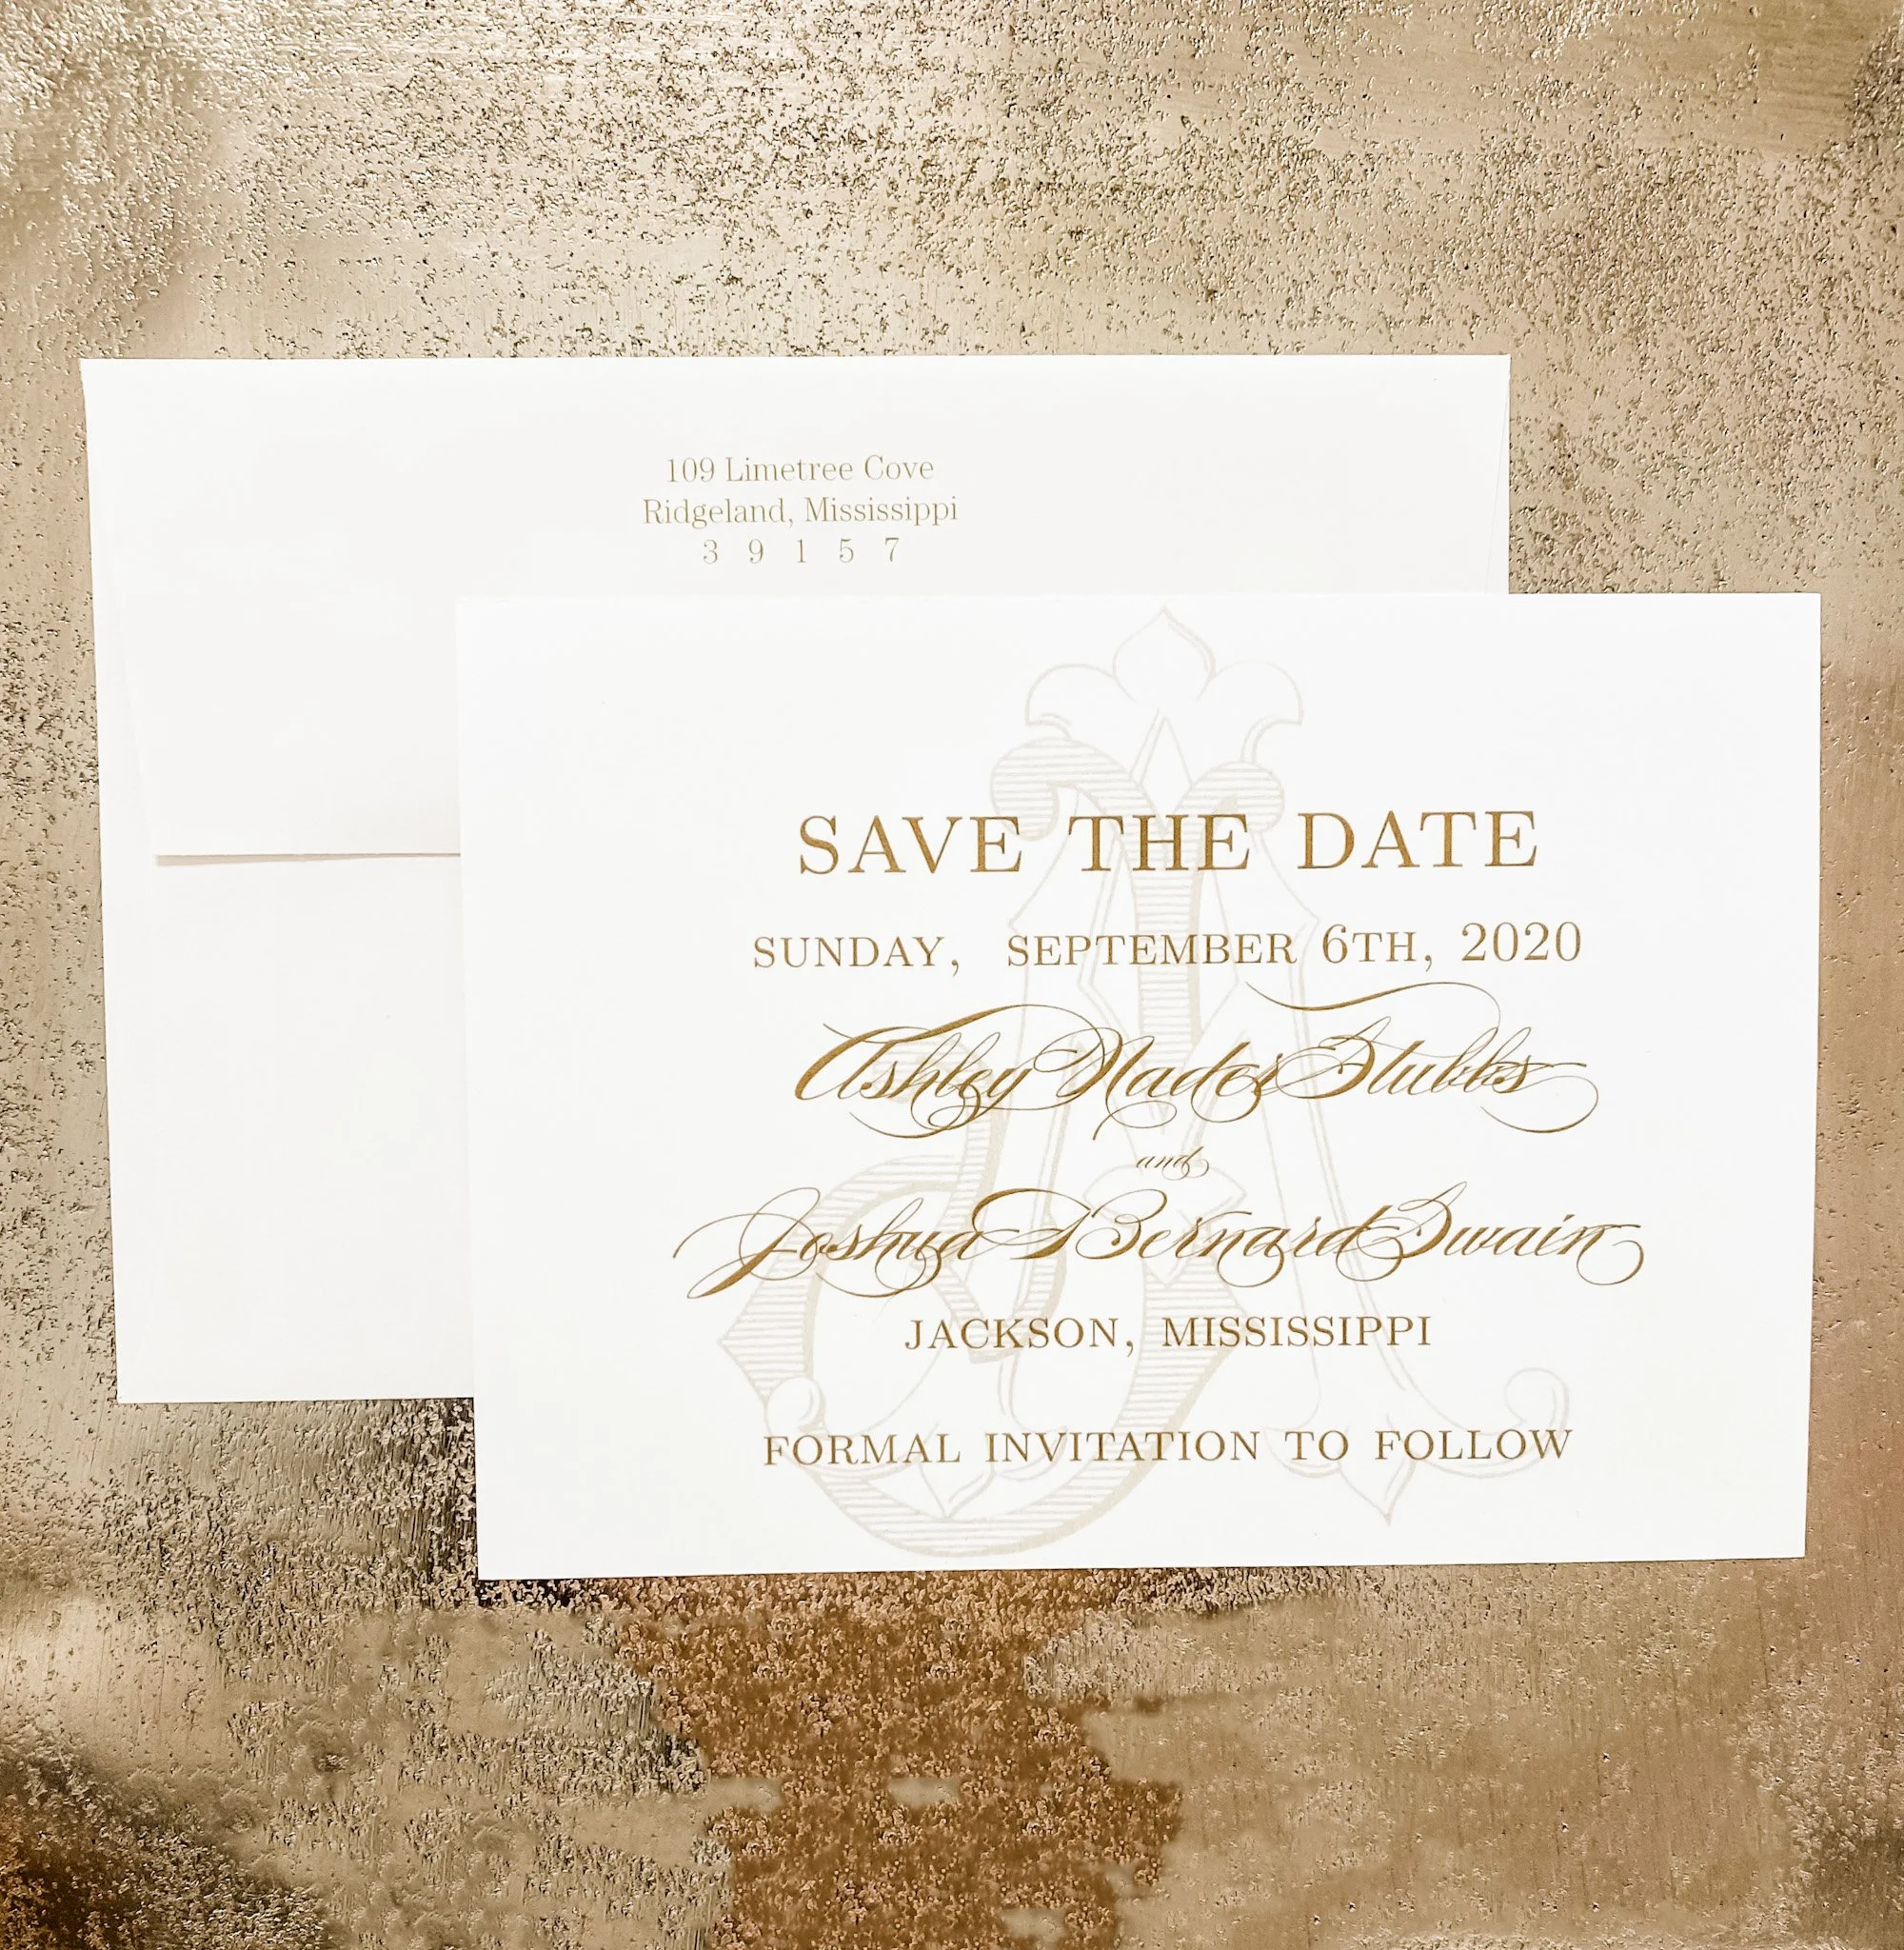 109 Limetree Cove
Ridgeland, Mississippi
3 9 1 5 7
SAVE THE DATE
SUNDAY, SEPTEMBER 6TH, 2020
Ashley Nader Stubbs
and
Joshua Bernard Swain
JACKSON, MISSISSIPPI
FORMAL INVITATION TO FOLLOW